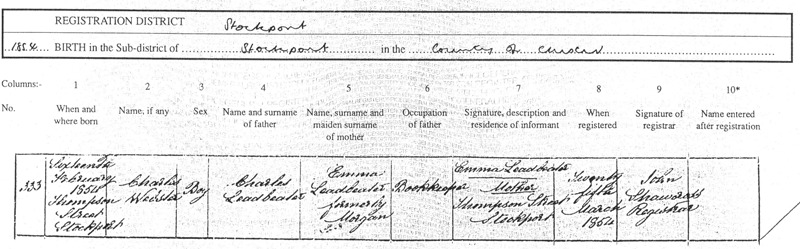 REGISTRATION DISTRICT Stockport
1854. BIRTH in the Sub-district of Stockport in the County of Chester
Columns:- 1 2 3 4 5 6 7 8 9 10*
No. When and where born Name, if any Sex Name and surname of father Name, surname and maiden surname of mother Occupation of father Signature, description and residence of informant When registered Signature of registrar Name entered after registration
333 Sixteenth February 1854 Thompson Street Stockport Charles Webster Boy Charles Leadbeater Emma Leadbeater formerly Morgan Bookkeeper Emma Leadbeater Mother Thompson Street Stockport Twenty fifth March 1854 John Shawcross Registrar